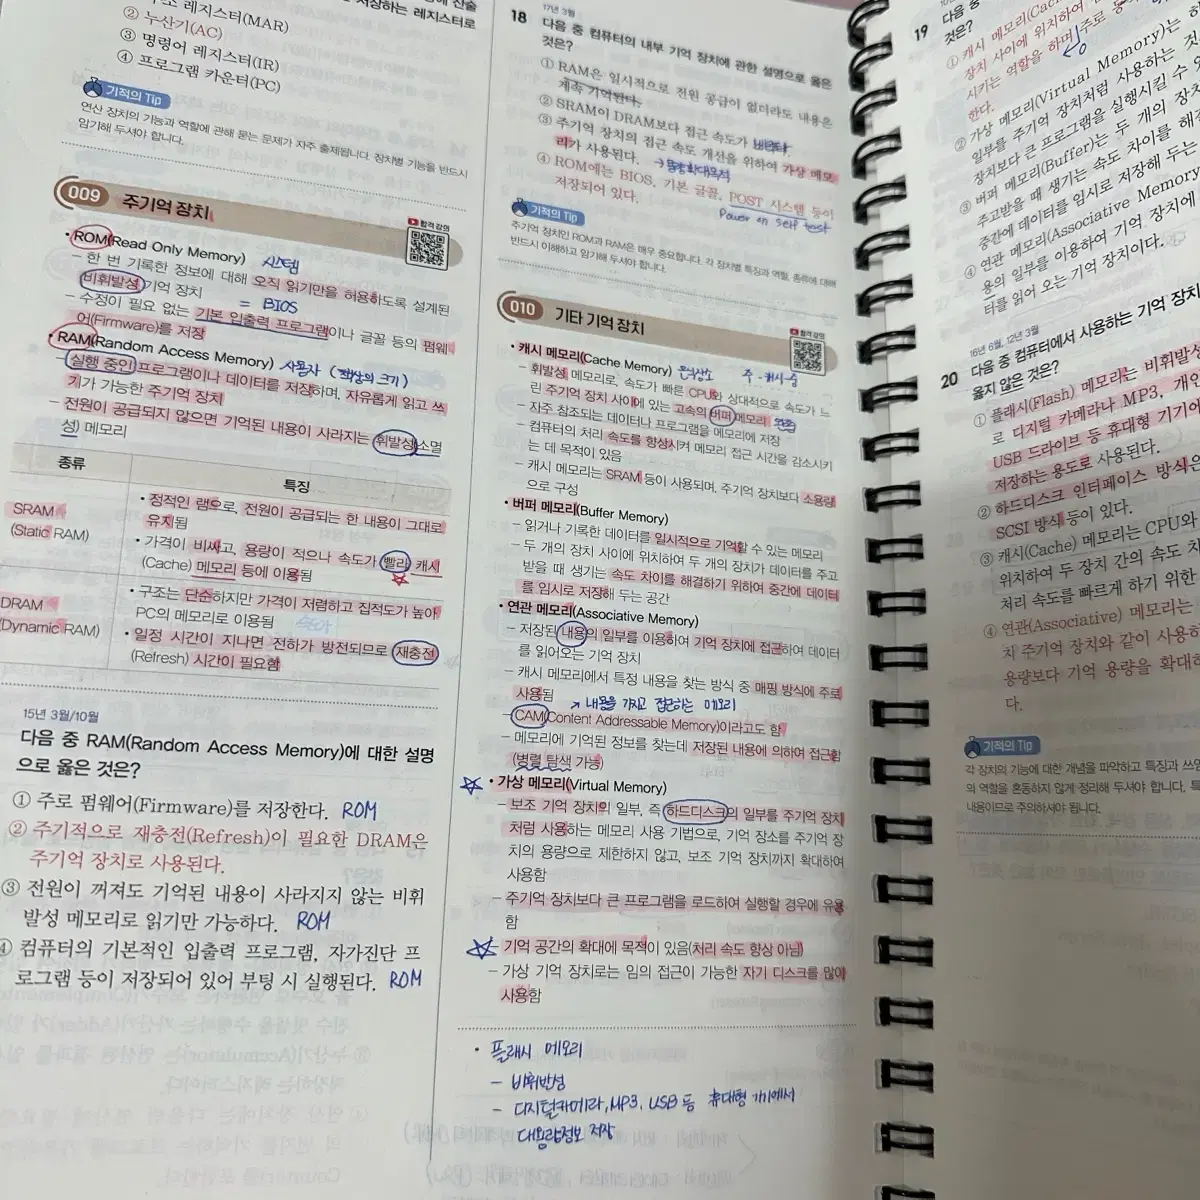 소 레지스터(MAR)
② 누산기(AC)
③ 명령어 레지스터(IR)
④ 프로그램 카운터(PC)
저장하는 레지스터로
기적의 Tip
연산 장치의 기능과 역할에 관해 묻는 문제가 자주 출제됩니다. 장치별 기능을 반드시
암기해 두셔야 합니다.
009 주기억 장치
합격 강의
• ROM(Read Only Memory) 시스템
– 한 번 기록한 정보에 대해 오직 읽기만을 허용하도록 설계된
비휘발성 기억 장치
= BIOS
– 수정이 필요 없는 기본 입출력 프로그램이나 글꼴 등의 펌웨
어(Firmware)를 저장
• RAM(Random Access Memory) 사용자 (책상의 크기)
– 실행 중인 프로그램이나 데이터를 저장하며, 자유롭게 읽고 쓰
기가 가능한 주기억 장치
– 전원이 공급되지 않으면 기억된 내용이 사라지는 휘발성(소멸
성) 메모리
종류 특징
SRAM
(Static RAM)
• 정적인 램으로, 전원이 공급되는 한 내용이 그대로
유지됨
• 가격이 비싸고, 용량이 적으나 속도가 빨라 캐시
(Cache) 메모리 등에 이용됨
DRAM
(Dynamic RAM)
• 구조는 단순하지만 가격이 저렴하고 집적도가 높아
PC의 메모리로 이용됨
• 일정 시간이 지나면 전하가 방전되므로 재충전
(Refresh) 시간이 필요함
15년 3월/10월
다음 중 RAM(Random Access Memory)에 대한 설명
으로 옳은 것은?
① 주로 펌웨어(Firmware)를 저장한다. ROM
② 주기적으로 재충전(Refresh)이 필요한 DRAM은
주기억 장치로 사용된다.
③ 전원이 꺼져도 기억된 내용이 사라지지 않는 비휘
발성 메모리로 읽기만 가능하다. ROM
④ 컴퓨터의 기본적인 입출력 프로그램, 자가진단 프
로그램 등이 저장되어 있어 부팅 시 실행된다. ROM
17년 3월
18 다음 중 컴퓨터의 내부 기억 장치에 관한 설명으로 옳은
것은?
① RAM은 일시적으로 전원 공급이 없더라도 내용은
계속 기억된다.
② SRAM이 DRAM보다 접근 속도가
③ 주기억 장치의 접근 속도 개선을 위하여 가상 메모
리가 사용된다. → 용량확대목적
④ ROM에는 BIOS, 기본 글꼴, POST 시스템 등이
저장되어 있다. Power on self test
기적의 Tip
주기억 장치인 ROM과 RAM은 매우 중요합니다. 각 장치별 특징과 역할, 종류에 대해
반드시 이해하고 암기해 두셔야 합니다.
010 기타 기억 장치
합격 강의
• 캐시 메모리(Cache Memory) 주 - 캐시 -
– 휘발성 메모리로, 속도가 빠른 CPU와 상대적으로 속도가 느
린 주기억 장치 사이에 있는 고속의 버퍼 메모리
– 자주 참조되는 데이터나 프로그램을 메모리에 저장
– 컴퓨터의 처리 속도를 향상시켜 메모리 접근 시간을 감소시키
는 데 목적이 있음
– 캐시 메모리는 SRAM 등이 사용되며, 주기억 장치보다 소용량
으로 구성
• 버퍼 메모리(Buffer Memory)
– 읽거나 기록한 데이터를 일시적으로 기억할 수 있는 메모리
– 두 개의 장치 사이에 위치하여 두 개의 장치가 데이터를 주고
받을 때 생기는 속도 차이를 해결하기 위하여 중간에 데이터
를 임시로 저장해 두는 공간
• 연관 메모리(Associative Memory)
– 저장된 내용의 일부를 이용하여 기억 장치에 접근하여 데이터
를 읽어오는 기억 장치
– 캐시 메모리에서 특정 내용을 찾는 방식 중 매핑 방식에 주로
사용됨 → 내용을 가지고 접근하는 메모리
– CAM(Content Addressable Memory)이라고도 함
– 메모리에 기억된 정보를 찾는데 저장된 내용에 의하여 접근함
(병렬 탐색 가능)
☆ • 가상 메모리(Virtual Memory)
– 보조 기억 장치의 일부, 즉 하드디스크의 일부를 주기억 장치
처럼 사용하는 메모리 사용 기법으로, 기억 장소를 주기억 장
치의 용량으로 제한하지 않고, 보조 기억 장치까지 확대하여
사용함
– 주기억 장치보다 큰 프로그램을 로드하여 실행할 경우에 유용
함
☆ – 기억 공간의 확대에 목적이 있음(처리 속도 향상 아님)
– 가상 기억 장치로는 임의 접근이 가능한 자기 디스크를 많이
사용함
• 플래시 메모리
– 비휘발성
– 디지털카메라, MP3, USB 등 휴대형 기기에서
대용량정보 저장
19 다음 중
것은?
① 캐시 메모리(Cac
장치 사이에 위치하여
시키는 역할을 하며 주로
한다.
② 가상 메모리(Virtual Memory)는 하
일부를 주기억 장치처럼 사용하는 것
장치보다 큰 프로그램을 실행시킬 수 있
③ 버퍼 메모리(Buffer)는 두 개의 장치
주고받을 때 생기는 속도 차이를 해결
중간에 데이터를 임시로 저장해 두는
④ 연관 메모리(Associative Memory
용의 일부를 이용하여 기억 장치에
터를 읽어 오는 기억 장치이다.
16년 6월, 12년 3월
20 다음 중 컴퓨터에서 사용하는 기억 장치
옳지 않은 것은?
① 플래시(Flash) 메모리는 비휘발성
로 디지털 카메라나 MP3, 개인
USB 드라이브 등 휴대형 기기에
저장하는 용도로 사용된다.
② 하드디스크 인터페이스 방식은
SCSI 방식 등이 있다.
③ 캐시(Cache) 메모리는 CPU와
위치하여 두 장치 간의 속도 차
처리 속도를 빠르게 하기 위한
④ 연관(Associative) 메모리는
치 주기억 장치와 같이 사용하
용량보다 기억 용량을 확대하
다.
기적의 Tip
각 장치의 기능에 대한 개념을 파악하고 특징과 쓰임
의 역할을 혼동하지 않게 정리해 두셔야 합니다. 특
내용이므로 주의하셔야 됩니다.